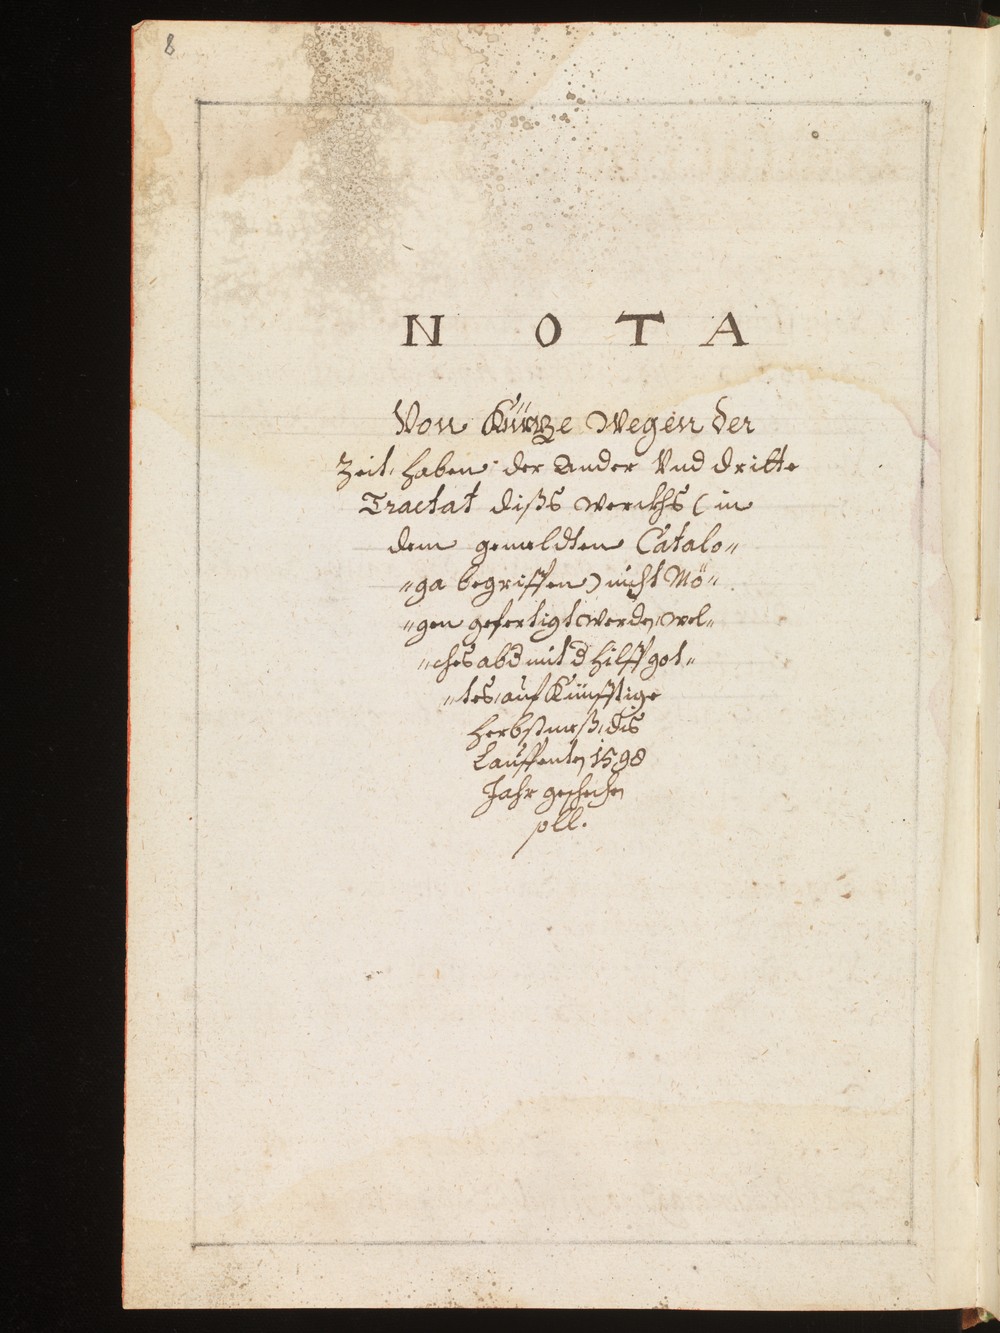 8
N O T A
Von Kürtze wegen der
Zeit, haben der Ander Vnd dritte
Tractat dißs werckhs (in
dem gemeldten Catalo〃
〃ga begriffen) nicht Mö〃
〃gen gefertigt werden, wel〃
〃ches abd mit d hilff got〃
〃tes, auf Künfftige
herbstmeß, dis
Lauffenden 1598
Jahr geschechen
soll.